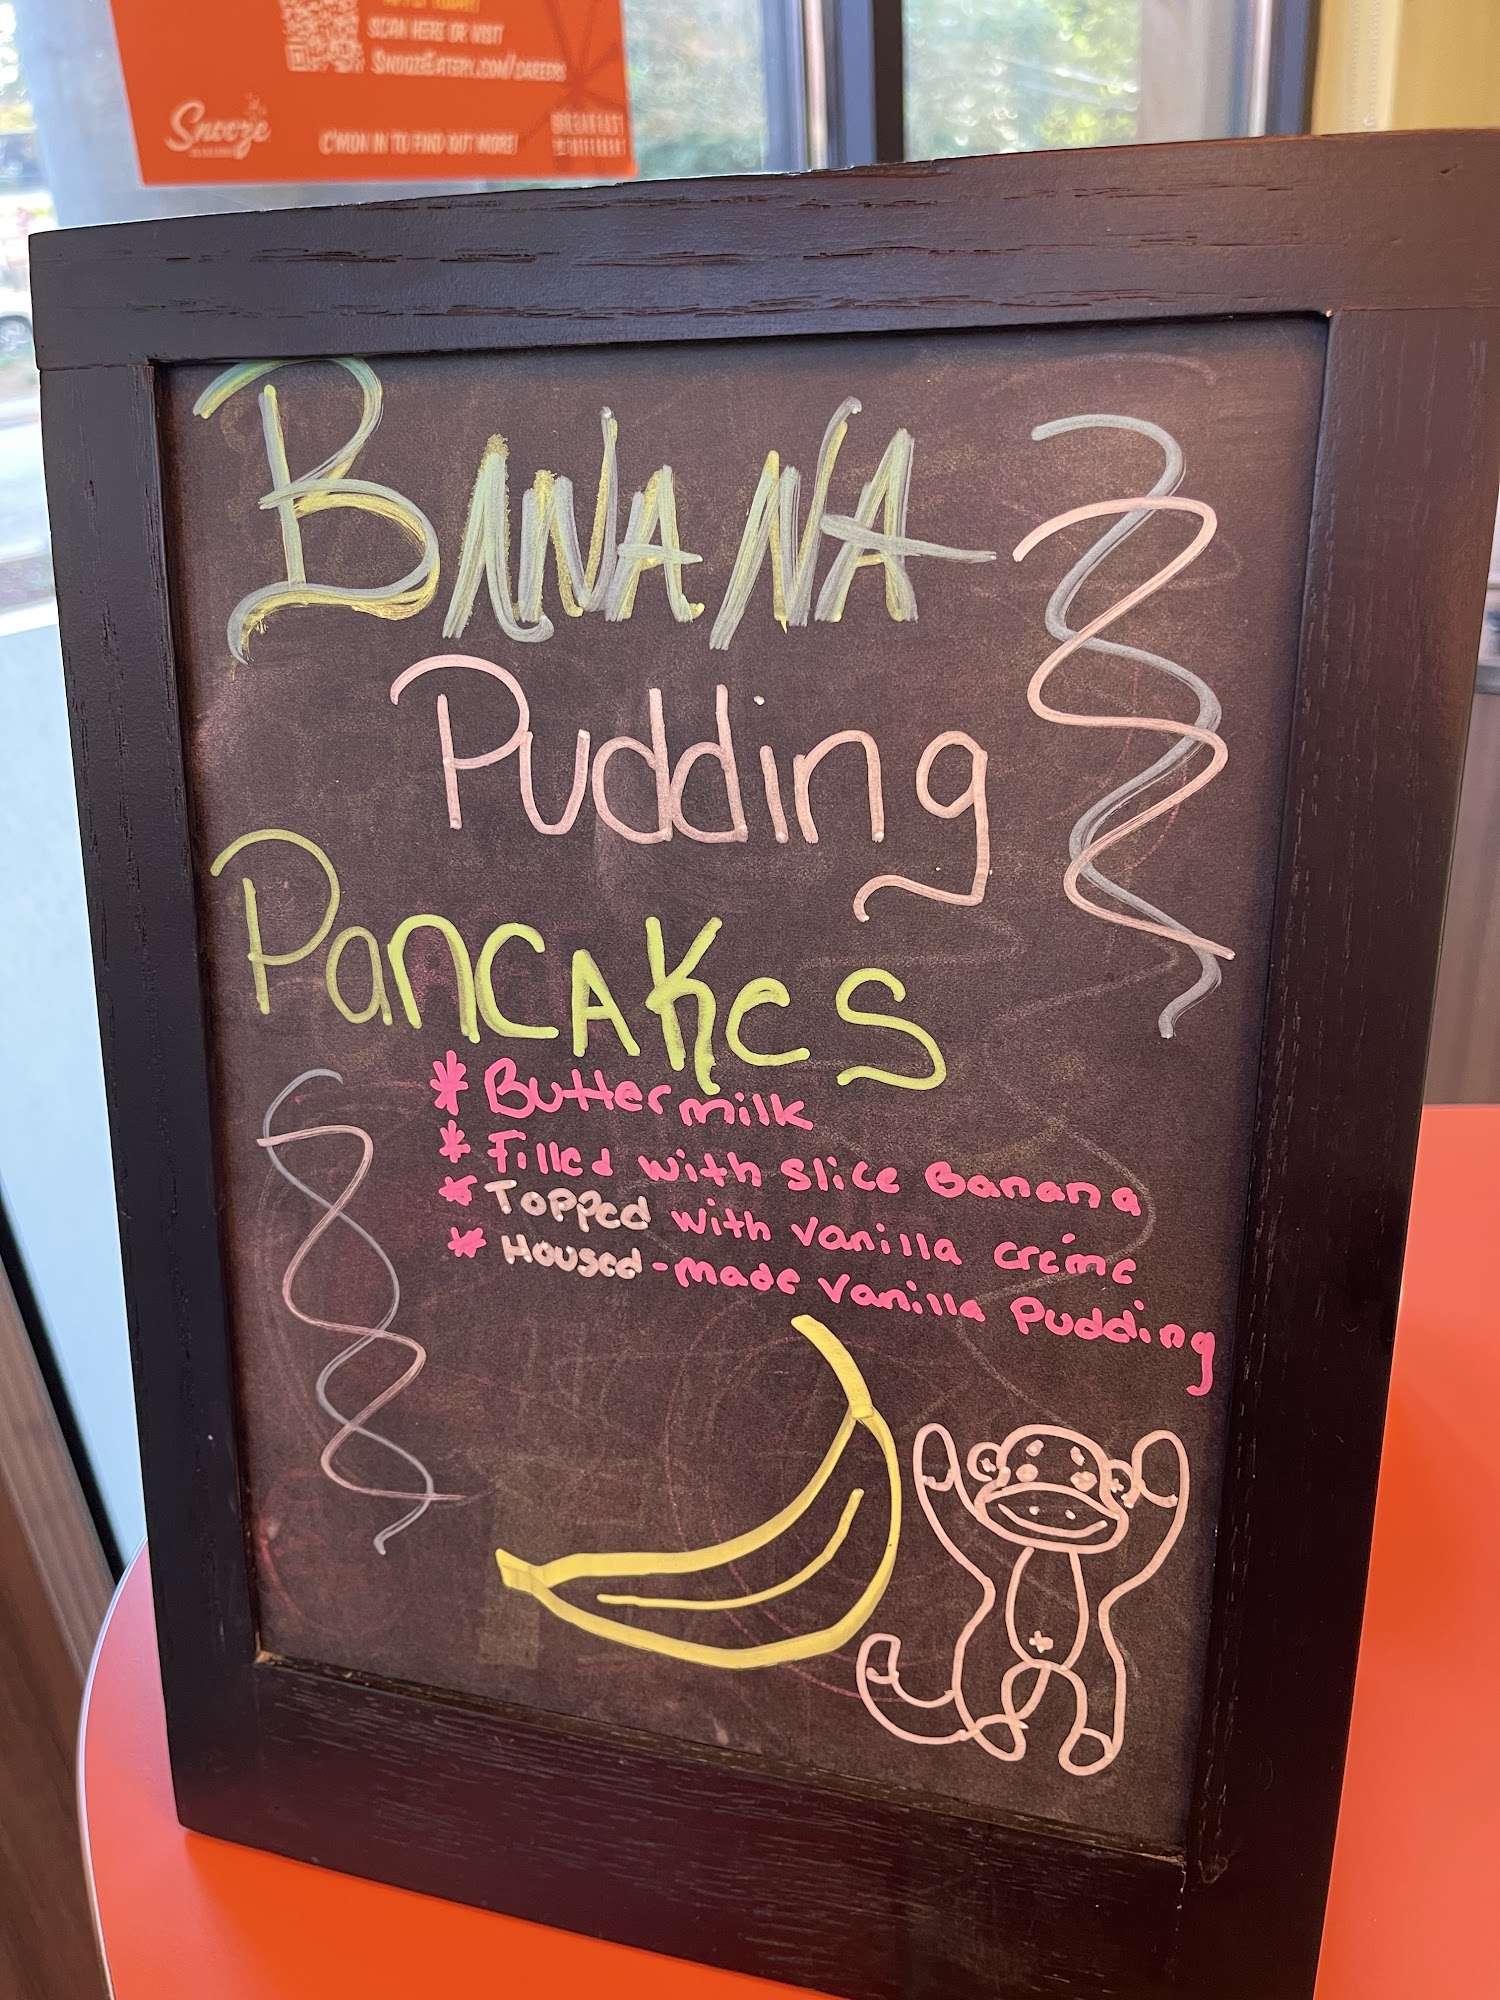 SCAN HERE OR VISIT
SNOOZEEATERY.COM/CAREERS
Snooze
C'MON IN TO FIND OUT MORE!
BANANA
Pudding
PancaKes
* Buttermilk
* Filled with slice Banana
* Topped with vanilla créme
* Housed-made vanilla Pudding